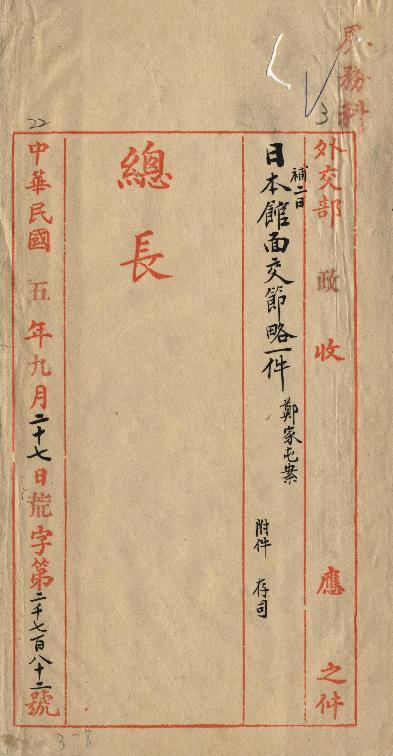 庶務科
3
外交部 政 收 應 之件
補二日
日本館面交節略一件 鄭家屯案
附件 存司
總長
22
中華民國 五年九月二十七日荒字第二千七百八十二號
3-8